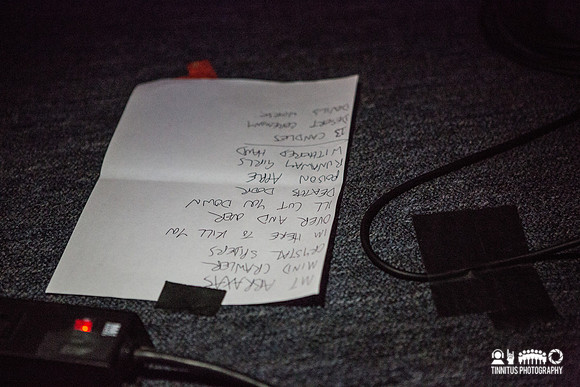 MT ABRAXAS
MIND CRAWLER
CRYSTAL SPIDERS
IM HERE TO KILL YOU
OVER AND OVER
ILL CUT YOU DOWN
DEATHS DOOR
POISON APPLE
RUNAWAY GIRLS
WITHERED HAND
13 CANDLES
DESERT CEREMONY
DEVILS WORK
TINNITUS PHOTOGRAPHY